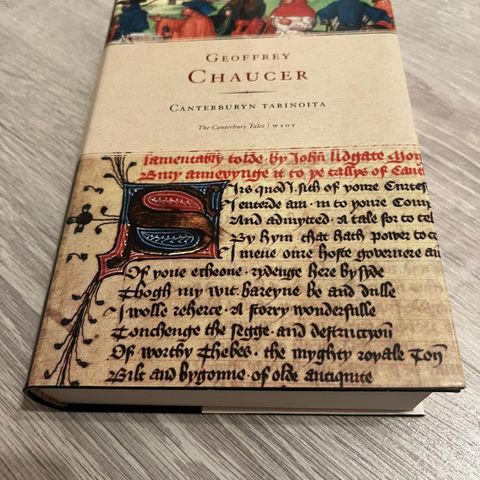 GEOFFREY
CHAUCER
CANTERBURYN TARINOITA
The Canterbury Tales | WSOY
lamentably tolde by John lidgate Mon
B my annevynge it to pe tallys of Cant
Sirs quod I sith of youre Curtes
I entrede am in to youre Com
And admitted A tale for to tel
By hym that hath power to co
I mene oure hoste governere an
Of youe echeone rydenge here by syde
Thogh my wit bareyne be and dulle
I wolle reherce A story wonderfulle
Touchenge the segge and destruccyon
Of worthy Thebes the myghty royale Ton
Bilt and bygonne of olde antiquite